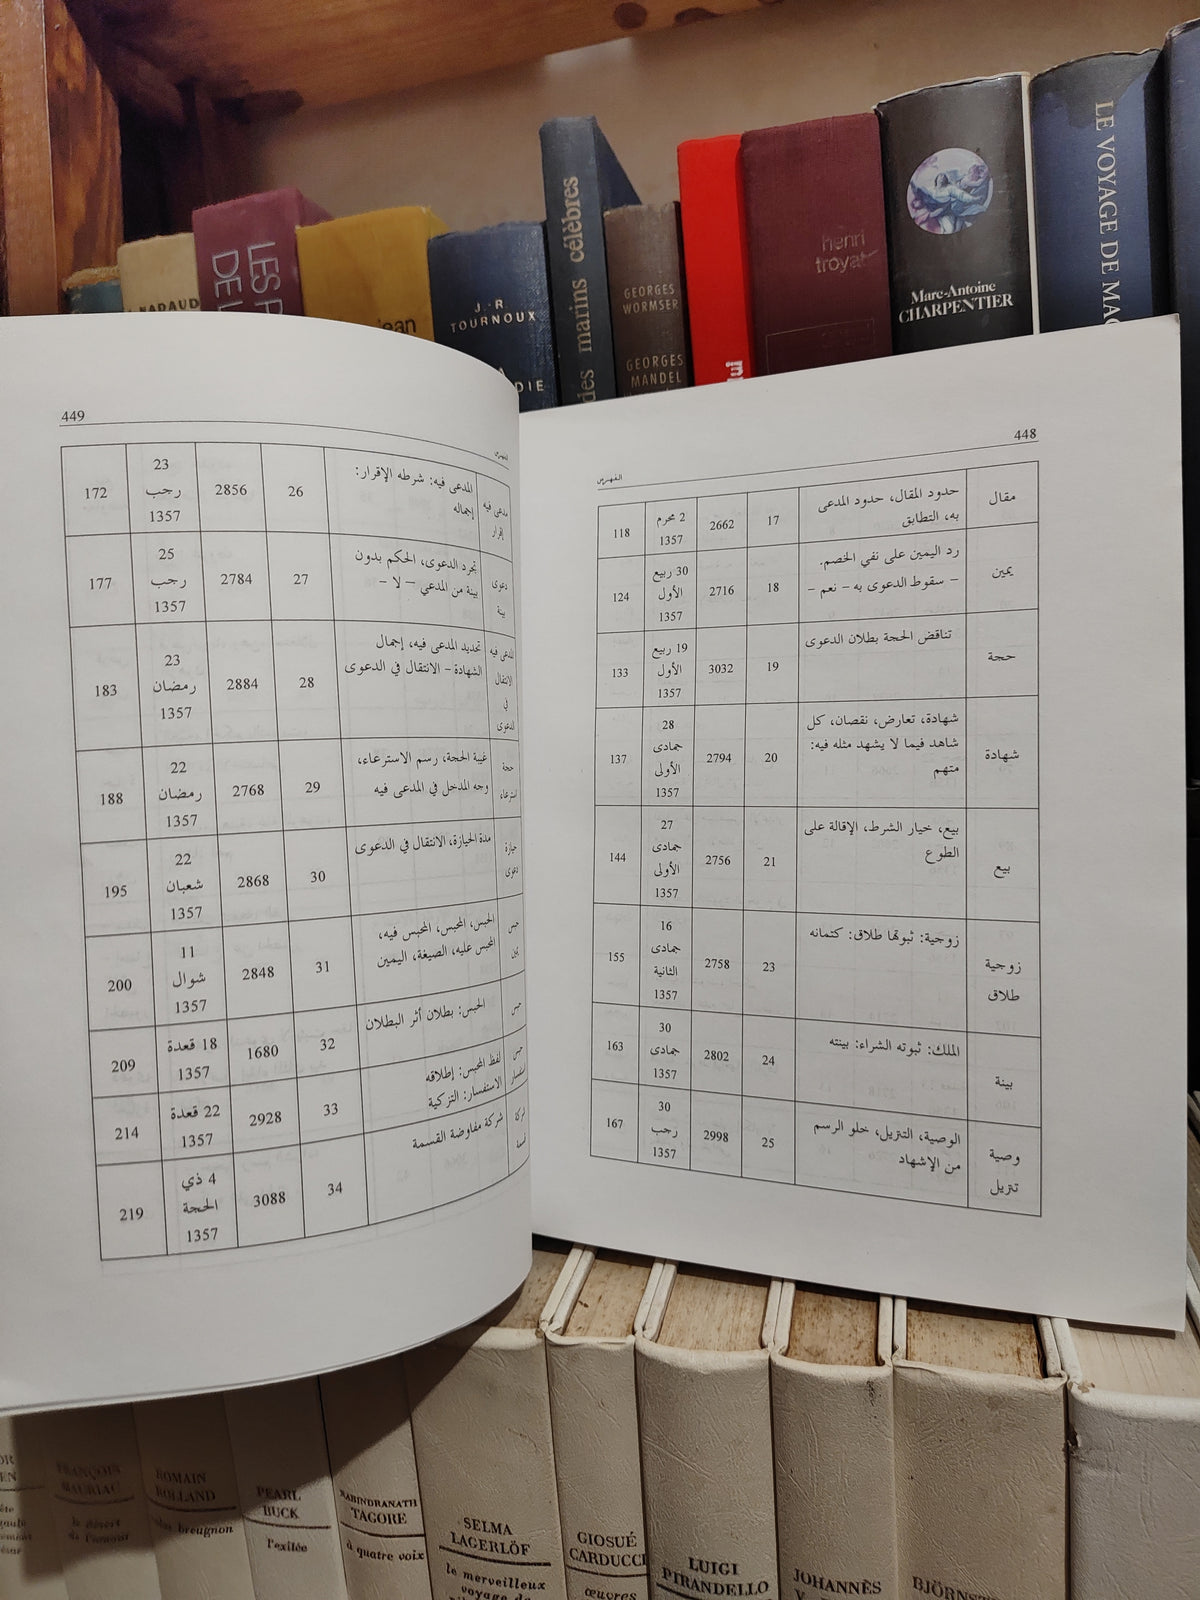 LES
DE
J.-R.
TOURNOUX
DIE
marins célèbres
des
GEORGES
WORMSER
GEORGES
MANDEL
henri
troyat
Marc-Antoine
CHARPENTIER
LE VOYAGE DE MAG
448
الفهرس
مقال
حدود المقال، حدود المدعى
به، التطابق
17
2662
2 محرم
1357
118
يمين
رد اليمين على نفي الخصم.
– سقوط الدعوى به – نعم –
18
2716
30 ربيع
الأول
1357
124
حجة
تناقض الحجة بطلان الدعوى
19
3032
19 ربيع
الأول
1357
133
شهادة
شهادة، تعارض، نقصان، كل
شاهد فيما لا يشهد مثله فيه:
متهم
20
2794
28
جمادى
الأولى
1357
137
بيع
بيع، خيار الشرط، الإقالة على
الطوع
21
2756
27
جمادى
الأولى
1357
144
زوجية
طلاق
زوجية: ثبوتها طلاق: كتمانه
23
2758
16
جمادى
الثانية
1357
155
بينة
الملك: ثبوته الشراء: بينته
24
2802
30
جمادى
1357
163
وصية
تتريل
الوصية، التتريل، خلو الرسم
من الإشهاد
25
2998
30
رجب
1357
167
449
الفهرس
مدعى فيه
إقرار
المدعى فيه: شرطه الإقرار:
إجماله
26
2856
23
رجب
1357
172
دعوى
بينة
تجرد الدعوى، الحكم بدون
بينة من المدعي – لا –
27
2784
25
رجب
1357
177
المدعى فيه
الانتقال
في
الدعوى
تحديد المدعى فيه، إجمال
الشهادة – الانتقال في الدعوى
28
2884
23
رمضان
1357
183
حجة
استرعاء
غيبة الحجة، رسم الاسترعاء،
وجه المدخل في المدعى فيه
29
2768
22
رمضان
1357
188
حيازة
دعوى
مدة الحيازة، الانتقال في الدعوى
30
2868
22
شعبان
1357
195
حبس
الحبس، المحبس، المحبس فيه،
المحبس عليه، الصيغة، اليمين
31
2848
11
شوال
1357
200
حبس
الحبس: بطلان أثر البطلان
32
1680
18 قعدة
1357
209
حبس
استفسار
لفظ المحبس: إطلاقه
الاستفسار: التزكية
33
2928
22 قعدة
1357
214
شركة
قسمة
شركة مفاوضة القسمة
34
3088
4 ذي
الحجة
1357
219
FRANÇOIS
MAURIAC
le désert
de l'amour
ROMAIN
ROLLAND
breugnon
PEARL
BUCK
l'exilée
RABINDRANATH
TAGORE
à quatre voix
SELMA
LAGERLÖF
le merveilleux
voyage de
GIOSUÉ
CARDUCCI
œuvres
LUIGI
PIRANDELLO
JOHANNÈS
V.